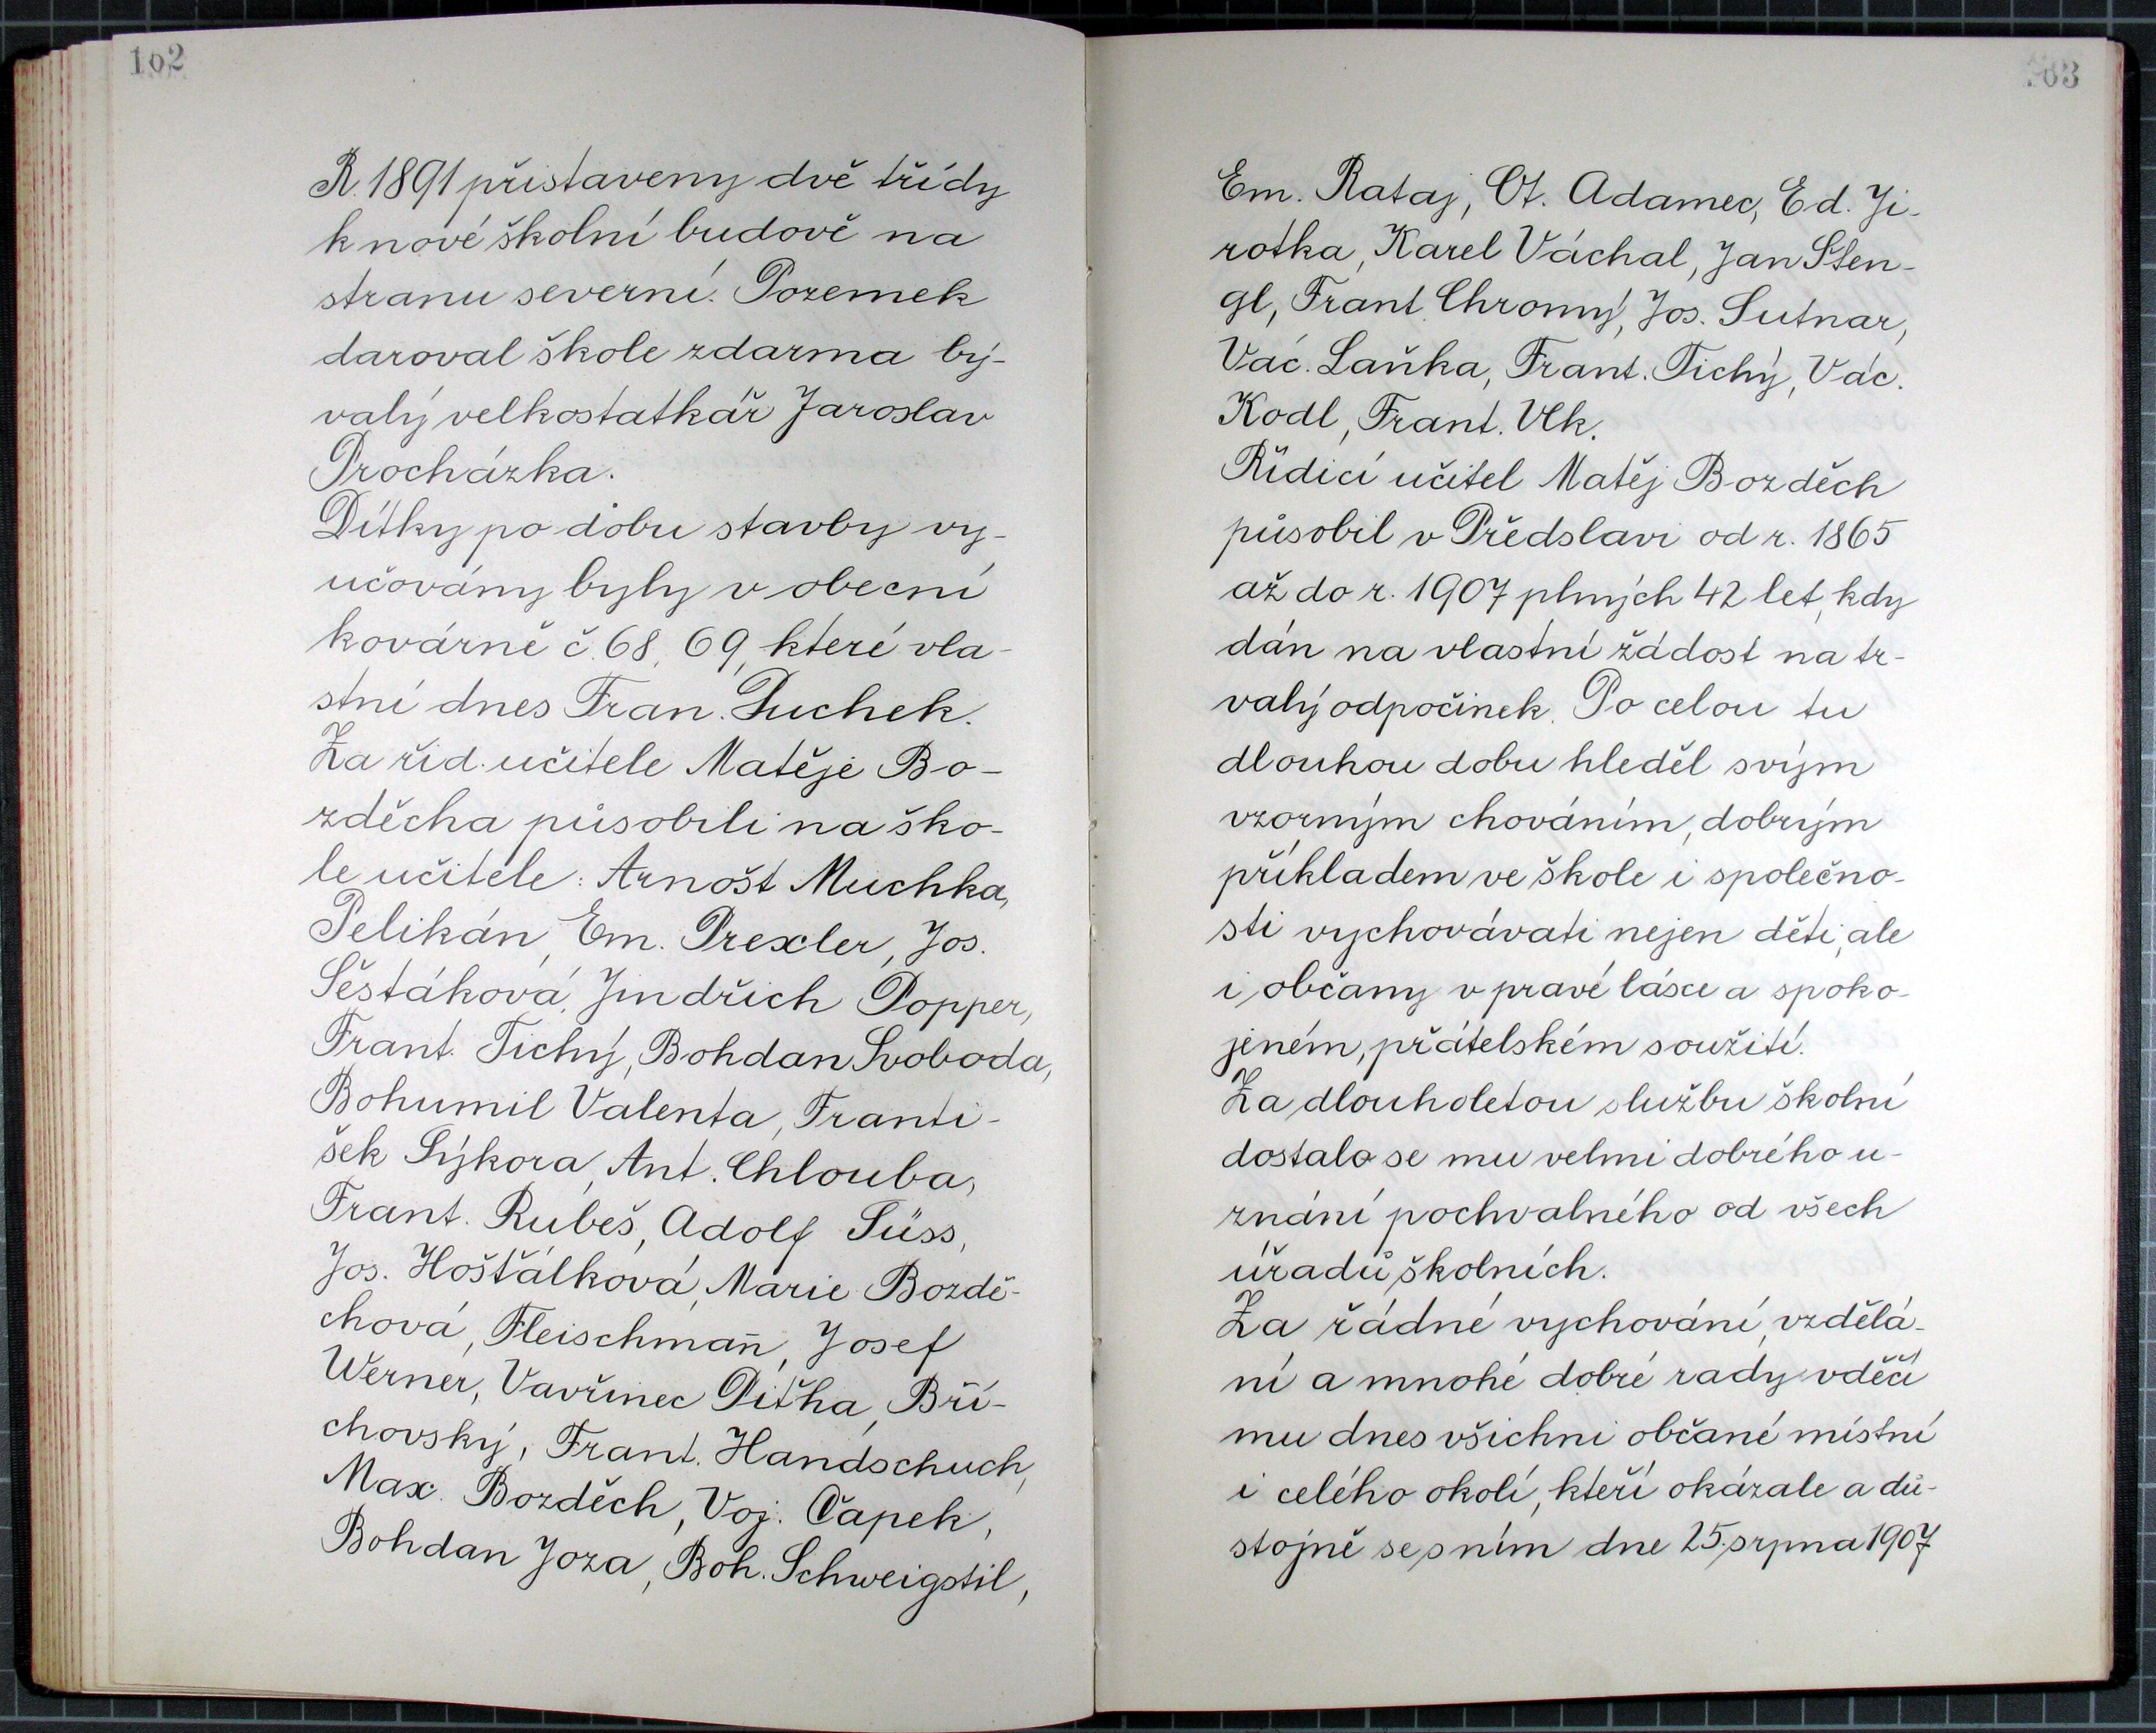 102
R. 1891 přistaveny dvě třídy
k nové školní budově na
stranu severní. Pozemek
daroval škole zdarma bý-
valý velkostatkář Jaroslav
Procházka.
Dítky po dobu stavby vy-
učovány byly v obecní
kovárně č. 68, 69, které vla-
stní dnes Fran. Duchek.
Za říd. učitele Matěje Bo-
zděcha působili na ško-
le učitelé: Arnošt Muchka,
Pelikán, Em. Drexler, Jos.
Šestáková, Jindřich Popper,
Frant. Tichý, Bohdan Svoboda,
Bohumil Valenta, Franti-
šek Sýkora, Ant. Chlouba,
Frant. Rubeš, Adolf Süss,
Jos. Hošťálková, Marie Bozdě-
chová, Fleischman̄, Josef
Werner, Vavřinec Diťha, Bří-
chovský, Frant. Handschuch,
Max. Bozděch, Voj. Čapek,
Bohdan Joza, Boh. Schweigstil,
103
Em. Rataj, Ot. Adamec, Ed. Ji-
rotka, Karel Váchal, Jan Šten-
gl, Frant. Chromý, Jos. Sutnar,
Vác. Laňka, Frant. Tichý, Vác.
Kodl, Frant. Vlk.
Řídící učitel Matěj Bozděch
působil v Předslavi od r. 1865
až do r. 1907 plných 42 let, kdy
dán na vlastní žádost na tr-
valý odpočinek. Po celou tu
dlouhou dobu hleděl svým
vzorným chováním, dobrým
příkladem ve škole i společno-
sti vychovávati nejen děti, ale
i občany v pravé lásce a spoko-
jeném, přátelském soužití.
Za dlouholetou službu školní
dostalo se mu velmi dobrého u-
znání pochvalného od všech
úřadů školních.
Za řádné vychování, vzdělá-
ní a mnohé dobré rady vděčí
mu dnes všichni občané místní
i celého okolí, kteří okázale a dů-
stojně se s ním dne 25. srpna 1907